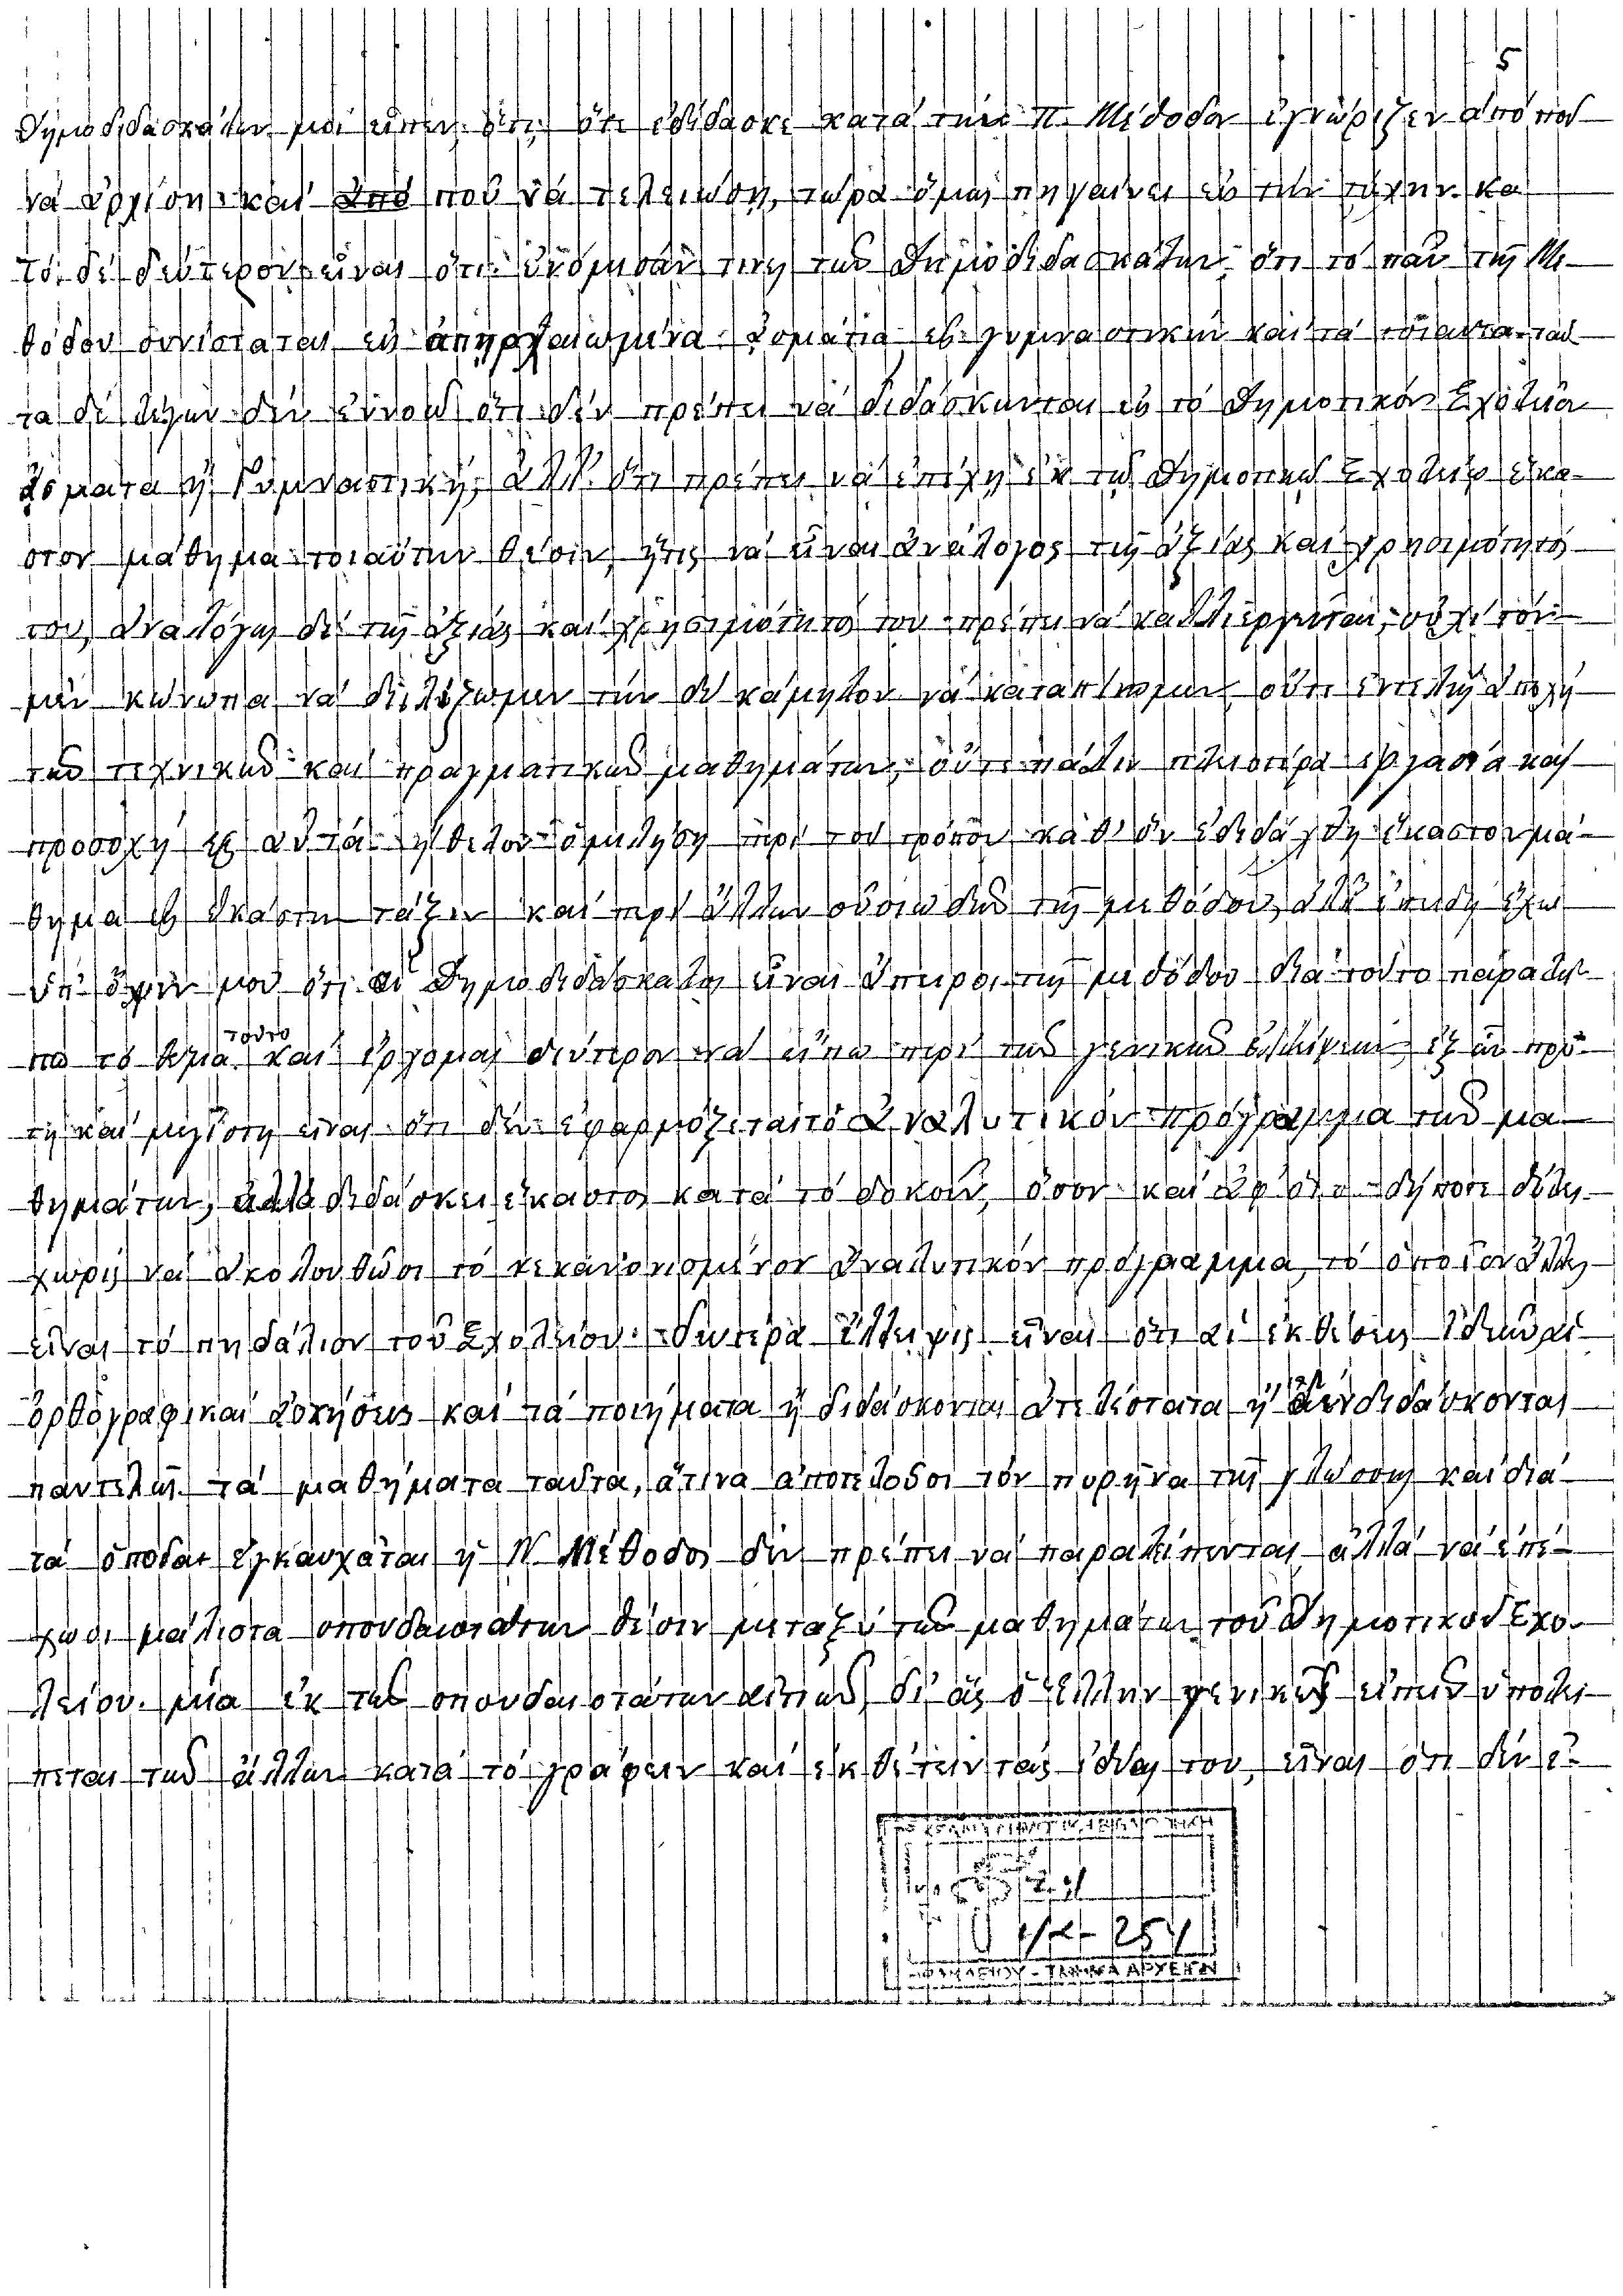 5
δημοδιδασκάλων μοί εἶπεν, ὅτι, ὅτε ἐδίδασκε κατά τήν Π. Μέθοδον ἐγνώριζεν ἀπό ποῦ
νά ἀρχίσῃ καί ἀπό ποῦ νά τελειώσῃ, τώρα ὅμως πηγαίνει εἰς τήν τύχην. κα
τό δέ δεύτερον εἶναι ὅτι ἐνόμισάν τινες τῶν δημοδιδασκάλων, ὅτι τό πᾶν τῆς Με-
θόδου συνίσταται εἰς ἀπηρχαιωμένα ᾀσμάτια εἰς γυμναστικήν καί τά τοιαῦτα. ταῦ-
τα δέ λέγων δέν ἐννοῶ ὅτι δέν πρέπει νά διδάσκωνται εἰς τό δημοτικόν Σχολεῖον
ᾄσματα ἤ Γυμναστική, ἀλλ' ὅτι πρέπει νά ἐπέχῃ ἐν τῷ δημοτικῷ Σχολείῳ ἕκα-
στον μάθημα τοιαύτην θέσιν, ἥτις νά εἶναι ἀνάλογος τῆς ἀξίας καί χρησιμότητός
του, ἀναλόγως δέ τῆς ἀξίας καί χρησιμότητός του πρέπει νά καλλιεργῆται, οὐχί τόν
μέν κώνωπα νά διϋλίζωμεν τήν δέ κάμηλον νά καταπίνωμεν, οὔτε ἐντελής ἀποχή
τῶν τεχνικῶν καί πραγματικῶν μαθημάτων, οὔτε πάλιν πλειοτέρα ἐργασία καί
προσοχή εἰς αὐτά. ἤθελον ὁμιλήσῃ περί τοῦ τρόπου καθ' ὅν ἐδιδάχθη ἕκαστον μά-
θημα εἰς ἑκάστην τάξιν καί περί ἄλλων οὐσιωδῶν τῆς μεθόδου, ἀλλ' ἐπειδή ἔχω
ὑπ' ὄψιν μου ὅτι οἱ δημοδιδάσκαλοι εἶναι ἄπειροι τῆς μεθόδου διά τοῦτο παραλεί-
πω τό θέμα τοῦτο καί ἔρχομαι δεύτερον νά εἴπω περί τῶν γενικῶν ἐλλείψεων, ἐξ ὧν πρώ-
τη καί μεγίστη εἶναι ὅτι δέν ἐφαρμόζεται τό ἀναλυτικόν πρόγραμμα τῶν μα-
θημάτων, ἀλλά διδάσκει ἕκαστος κατά τό δοκοῦν, ὅσον καί ἀφ' ὅτου δήποτε θέλει
χωρίς νά ἀκολουθῶσι τό κεκανονισμένον ἀναλυτικόν πρόγραμμα, τό ὁποῖον ἄλλως
εἶναι τό πηδάλιον τοῦ Σχολείου. δευτέρα ἔλλειψις εἶναι ὅτι αἱ ἐκθέσεις ἰδεῶν αἱ
ὀρθογραφικαί ἀσκήσεις καί τά ποιήματα ἤ διδάσκονται ἀτελέστατα ἤ δέν διδάσκονται
παντελῶς. τά μαθήματα ταῦτα, ἅτινα ἀποτελοῦσι τόν πυρῆνα τῆς γλώσσης καί διά
τά ὁποῖα ἐγκαυχᾶται ἡ Ν. Μέθοδος δέν πρέπει νά παραλείπωνται, ἀλλά νά ἐπέ-
χωσι μάλιστα σπουδαιοτάτην θέσιν μεταξύ τῶν μαθημάτων τοῦ δημοτικοῦ Σχο-
λείου. μία ἐκ τῶν σπουδαιοτάτων αἰτιῶν, δι' ἅς ὁ Ἕλλην γενικῶς εἰπεῖν ὑπολεί-
πεται τῶν ἄλλων κατά τό γράφειν καί ἐκθέτειν τάς ἰδέας του, εἶναι ὅτι δέν ἐ-